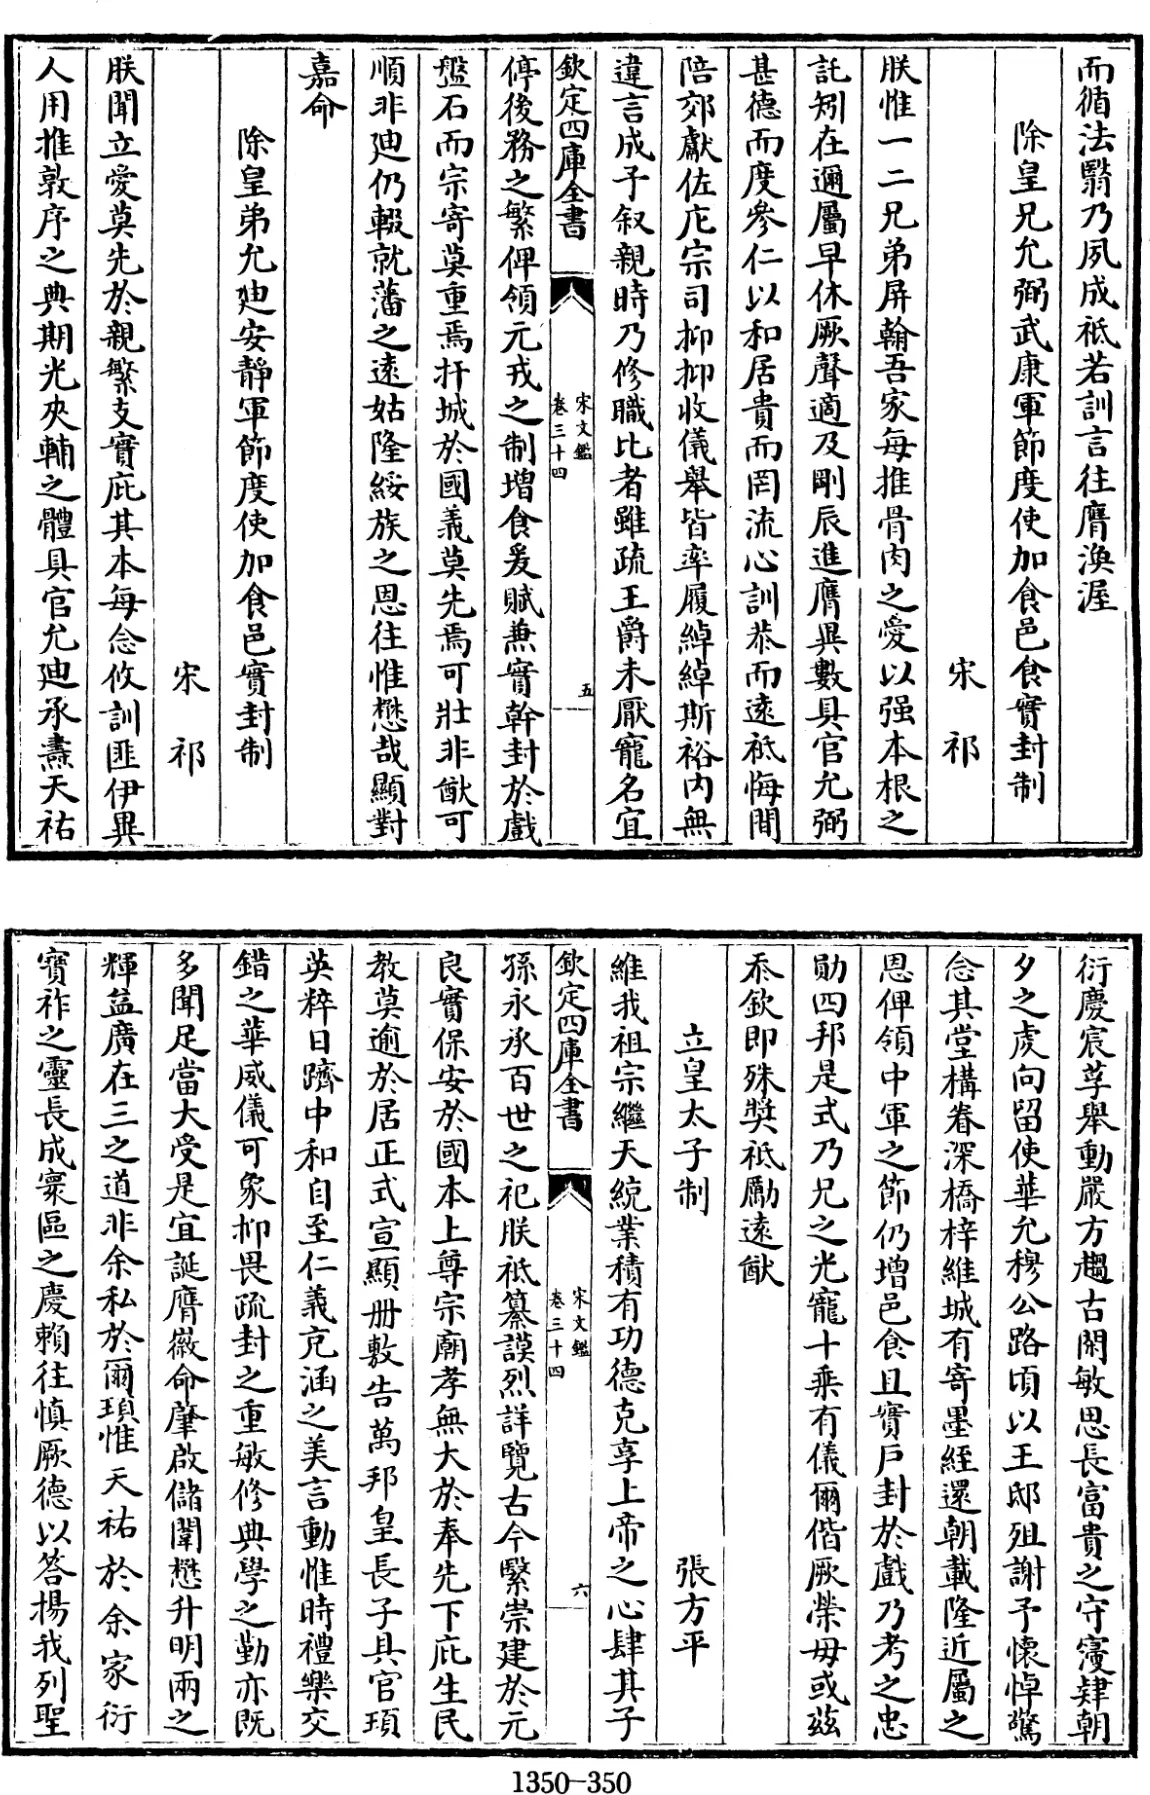 而循法翳乃夙成祗若訓言往膺渙渥
除皇兄允弼武康軍節度使加食邑食實封制
宋祁
朕惟一二兄弟屏翰吾家每推骨肉之愛以强本根之
託矧在邇屬早休厥聲適及剛辰進膺異數具官允弼
甚德而度參仁以和居貴而罔流心訓恭而遠祗悔間
陪郊獻佐庀宗司抑抑收儀舉皆率履綽綽斯裕内無
違言成予叙親時乃修職比者雖疏王爵未厭寵名宜
欽定四庫全書
宋文鑑
卷三十四
五
停後務之繁俾領元戎之制增食爰賦兼實幹封於戲
盤石而宗寄莫重焉扞城於國義莫先焉可壯非猷可
順非廸仍輟就藩之遠姑隆綏族之恩往惟懋哉顯對
嘉命
除皇弟允廸安靜軍節度使加食邑實封制
宋祁
朕聞立愛莫先於親繄支實庇其本每念攸訓匪伊異
人用推敦序之典期光夾輔之體具官允廸承燾天祐
衍慶宸萼舉動嚴方趨古閑敏思長富貴之守寖肄朝
夕之虔向留使華允穆公路頃以王邸殂謝予懷悼驚
念其堂構眷深橋梓維城有寄墨絰還朝載隆近屬之
恩俾領中軍之節仍增邑食且實戶封於戲乃考之忠
勛四邦是式乃兄之光寵十乘有儀爾偕厥榮毋或兹
忝欽即殊奬祗勵遠猷
立皇太子制
張方平
維我祖宗繼天統業積有功德克享上帝之心肆其子
欽定四庫全書
宋文鑑
卷三十四
六
孫永承百世之祀朕祗纂謨烈詳覽古今繄崇建於元
良實保安於國本上尊宗廟孝無大於奉先下庇生民
教莫逾於居正式宣顯册敷告萬邦皇長子具官頊
英粹日躋中和自至仁義充涵之美言動惟時禮樂交
錯之華威儀可象抑畏疏封之重敏修典學之勤亦既
多聞足當大受是宜誕膺徽命肇啟儲闈懋升明兩之
輝益廣在三之道非余私於爾頊惟天祐於余家衍
寳祚之靈長成寰區之慶賴往慎厥德以答揚我列聖
1350-350